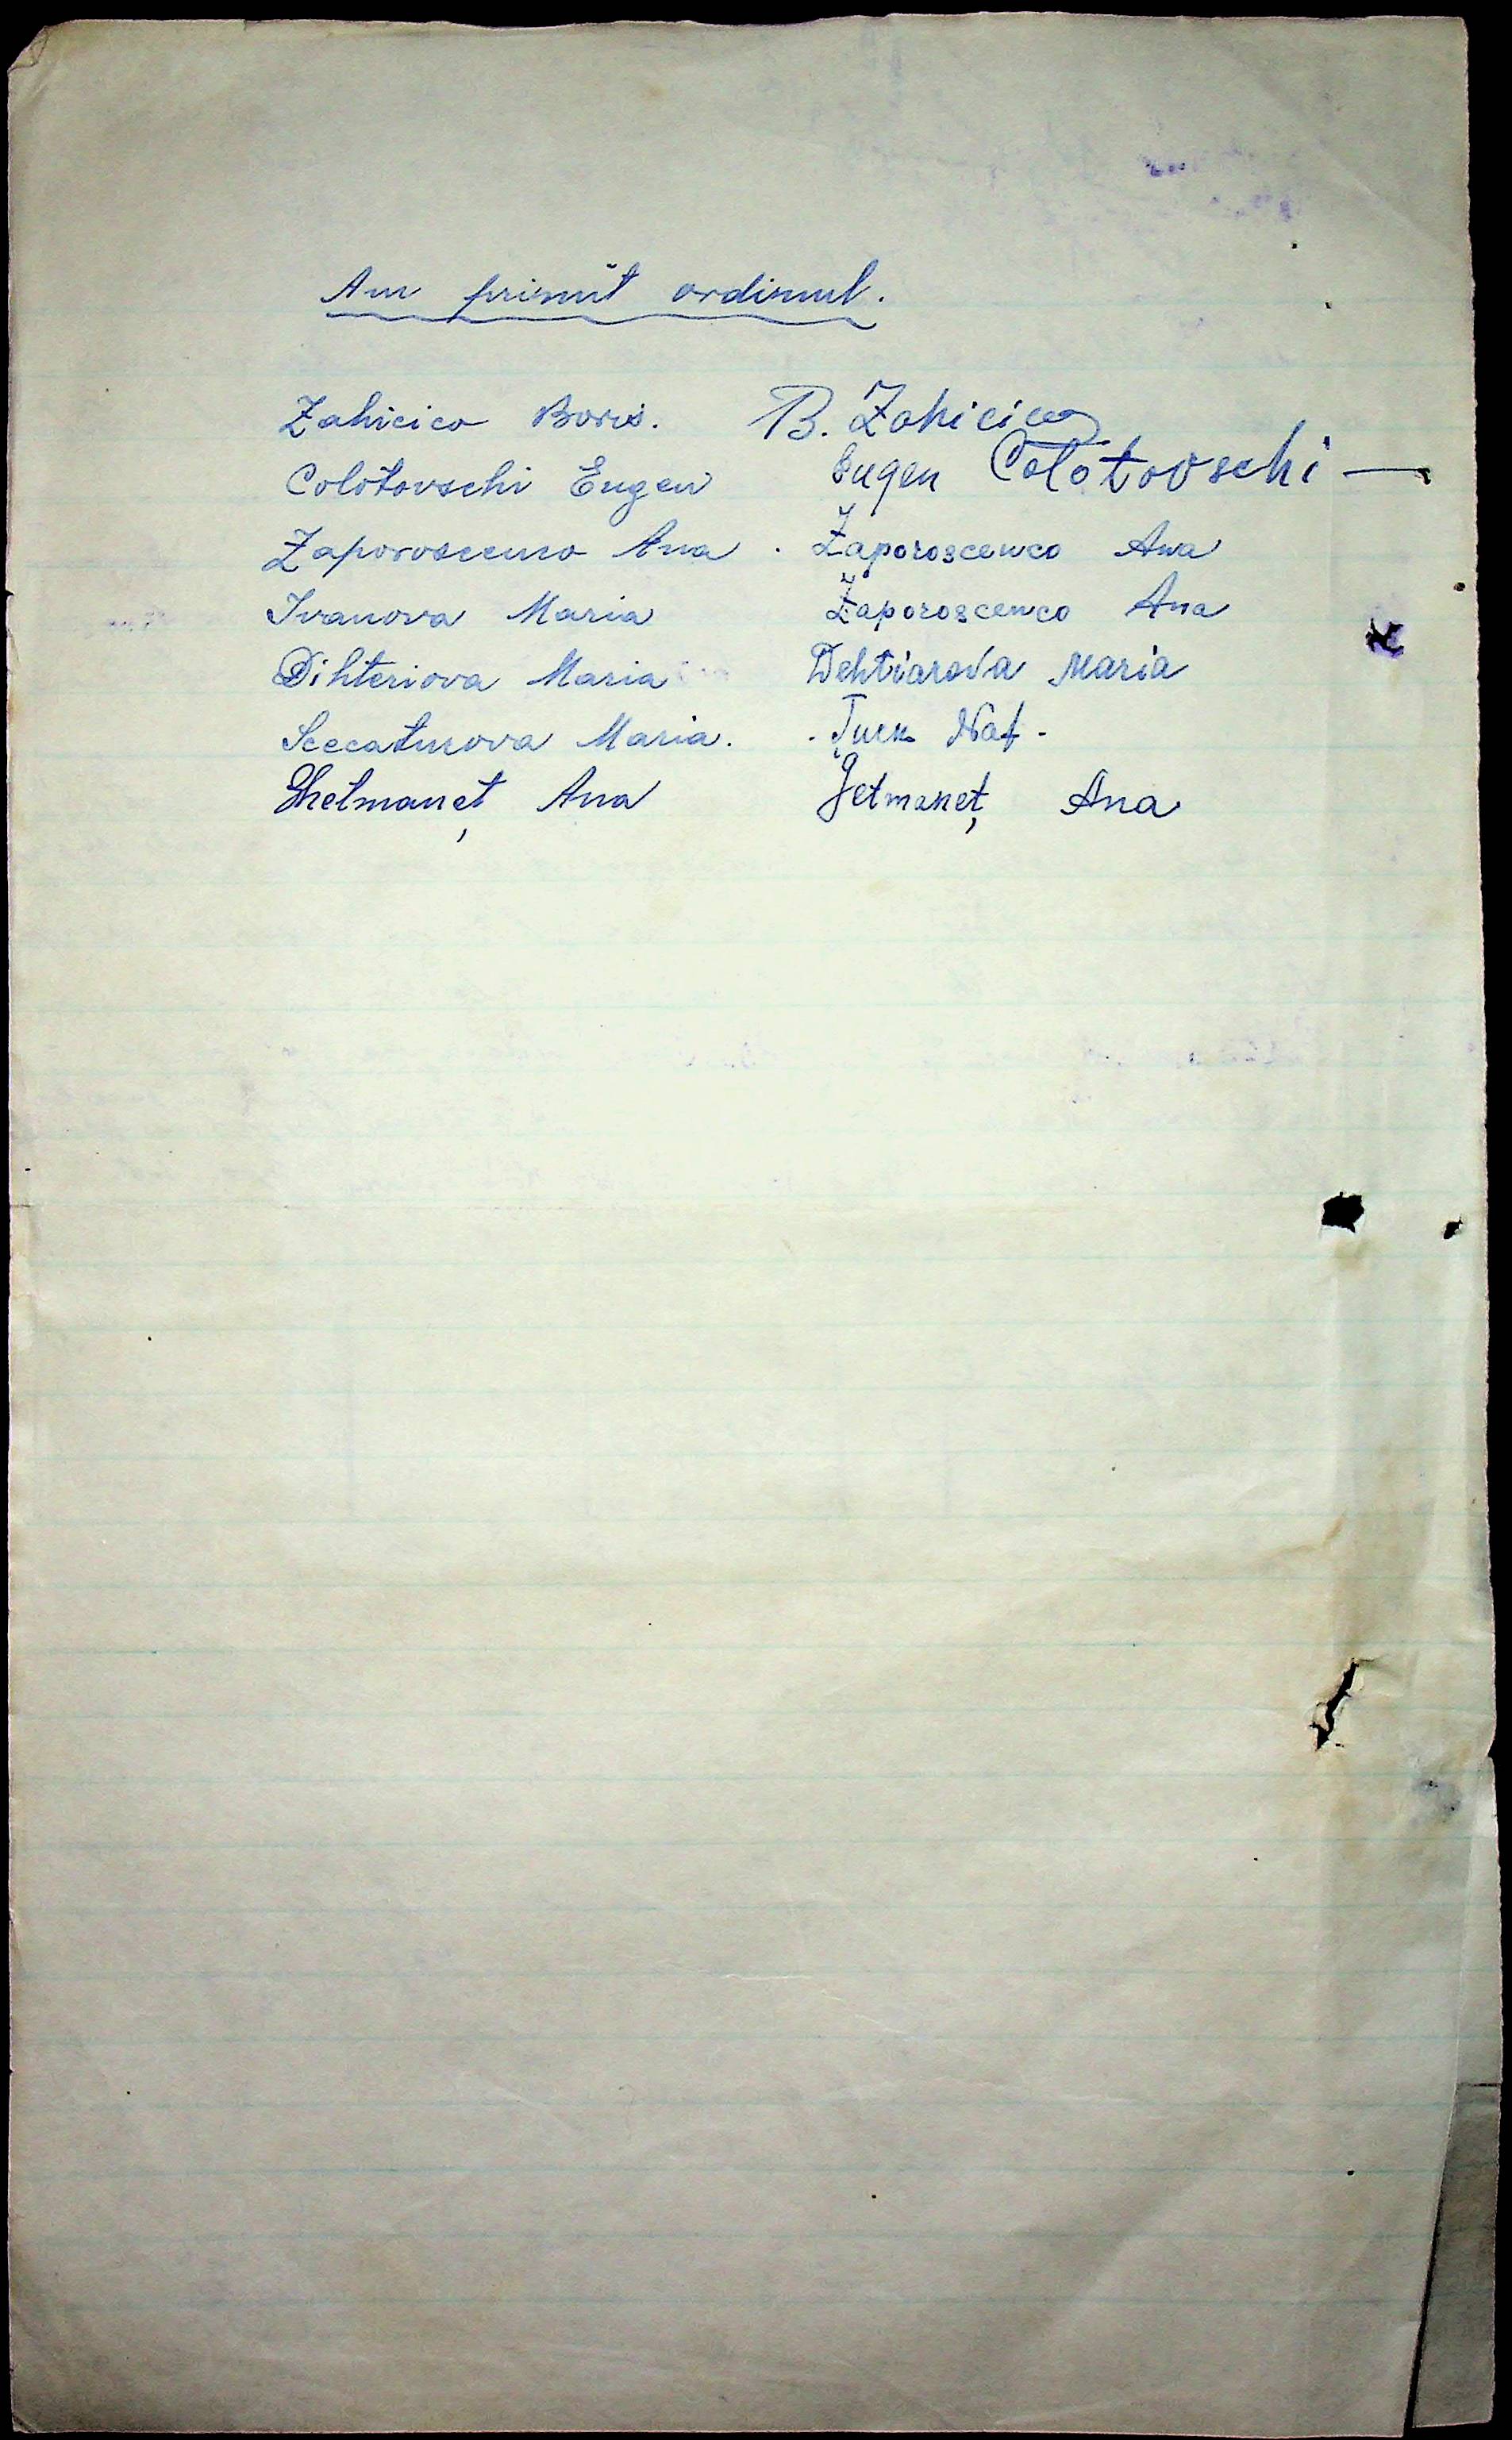 Am primit ordinul.
Zahicico Boris. B. Zahicico
Colotovschi Eugen Eugen Colotovschi —
Zaporoscenco Ana . Zaporoscenco Ana
Ivanova Maria Zaporoscenco Ana
Dihteriova Maria Dehtiarova Maria
Maria.
Ghetmaneț Ana Getmaneț Ana